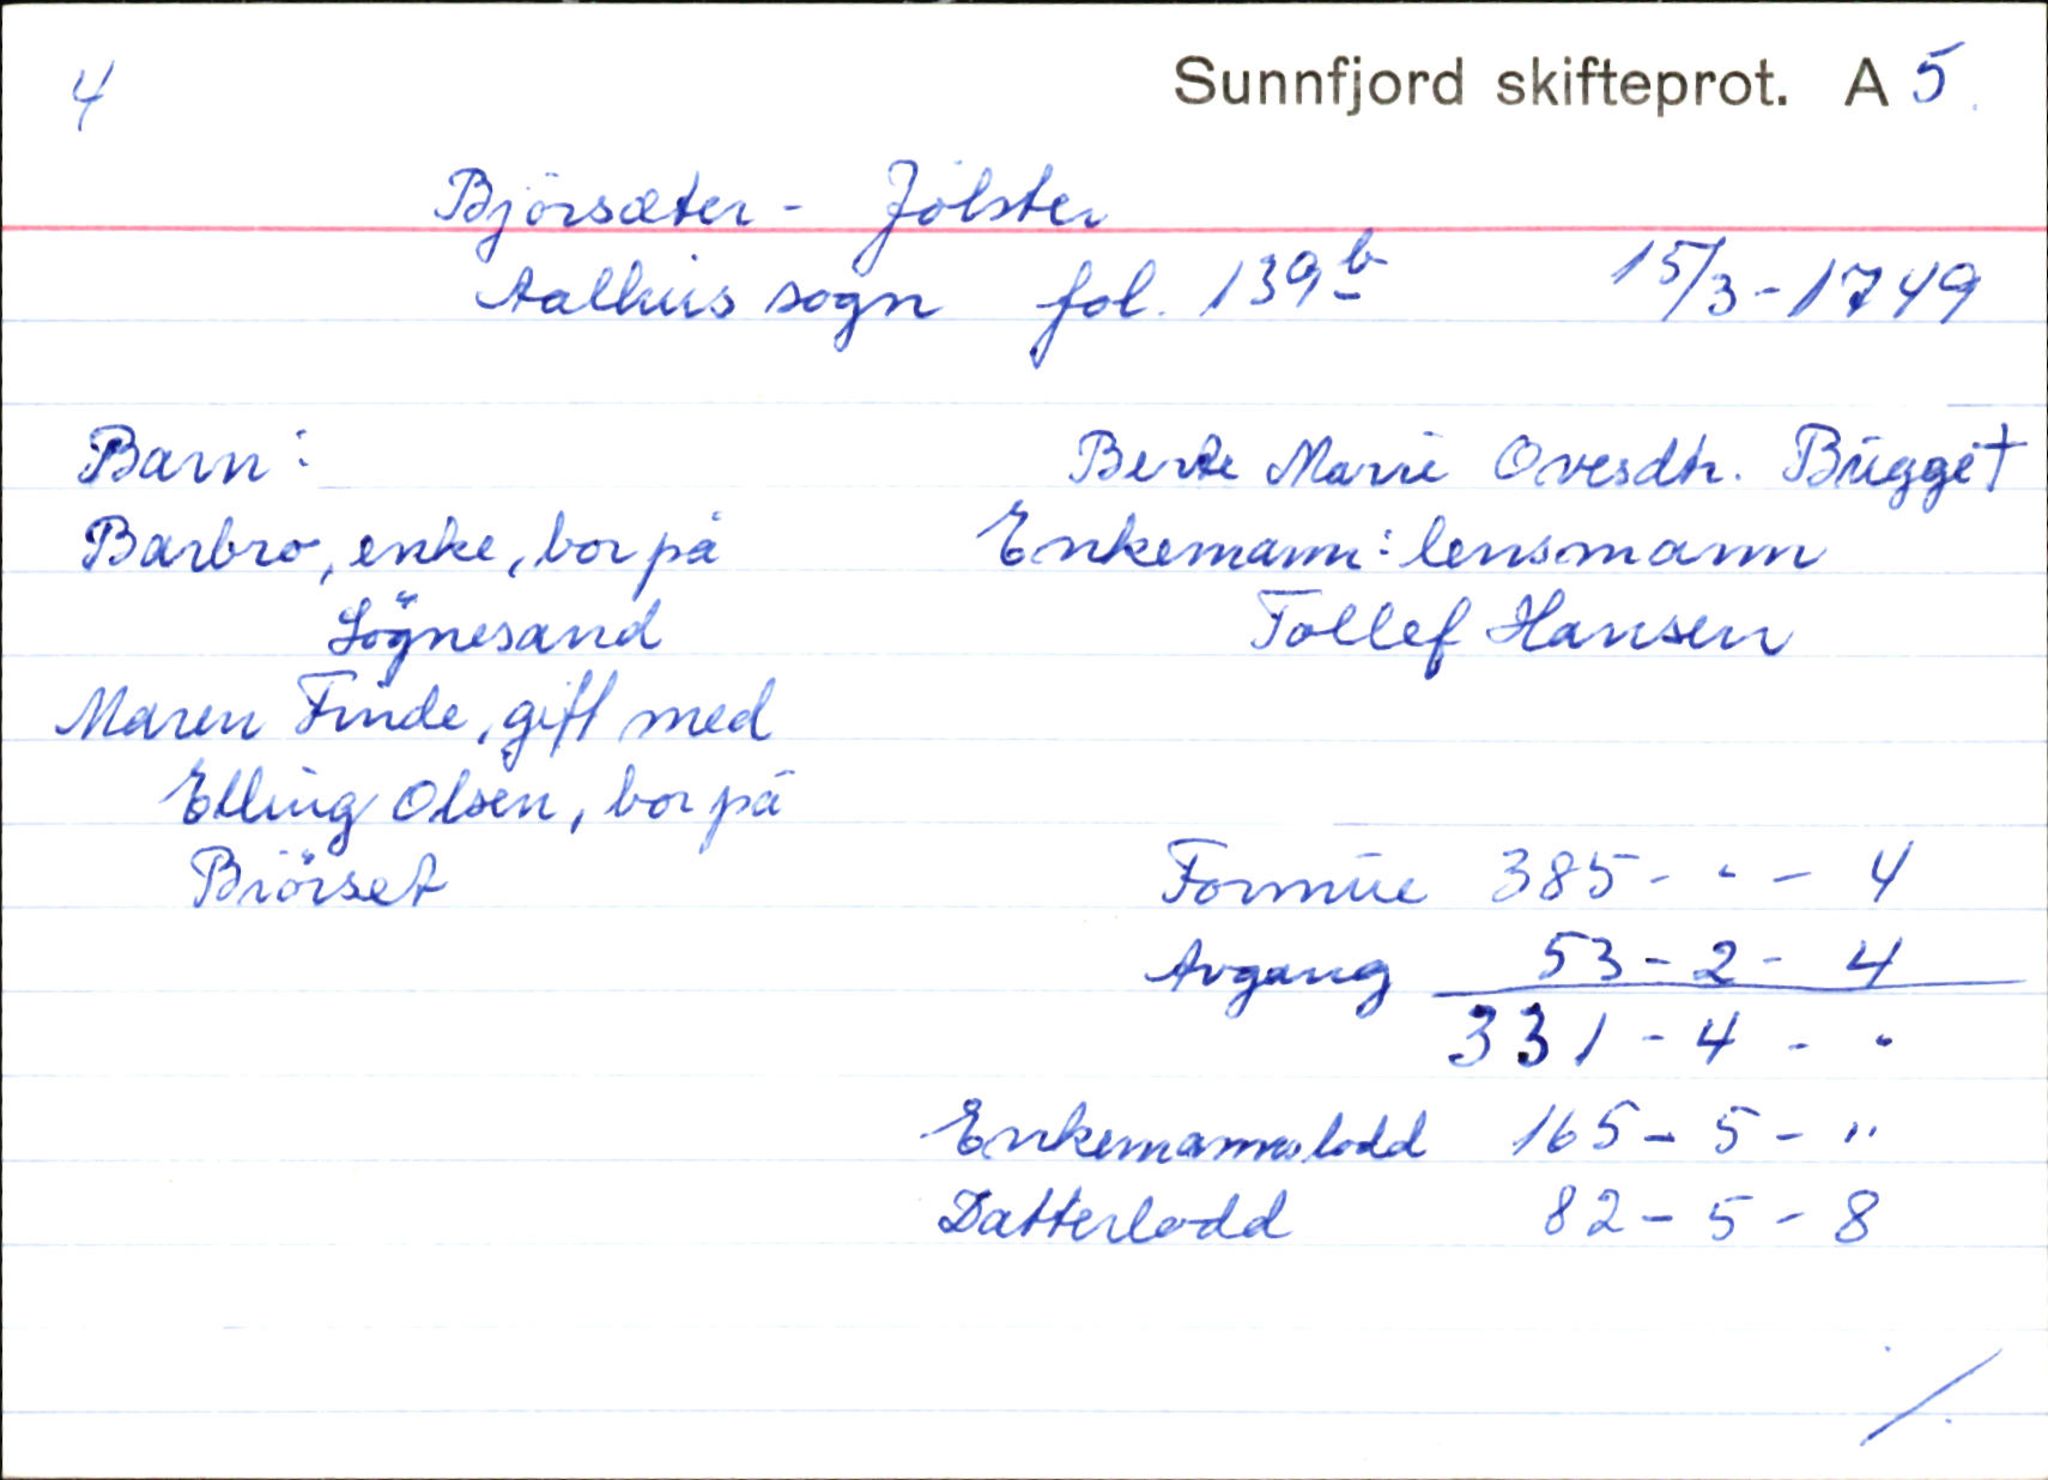 4
Sunnfjord skifteprot. A 5.
Björsæter - Jölster
Aalhus sogn fol. 139 b 15/3-1749
Barn:
Barbro, enke, bor på
Lögnesand
Maren Finde, gift med
Elling Olsen, bor på
Biörset
Berte Marie Ovesdtr. Bugge †
Enkemann: lensmann
Tollef Hansen
Formue 385 - " - 4
Avgang 53 - 2 - 4
331 - 4 - "
Enkemannslodd 165 - 5 - "
Datterlodd 82 - 5 - 8
/.